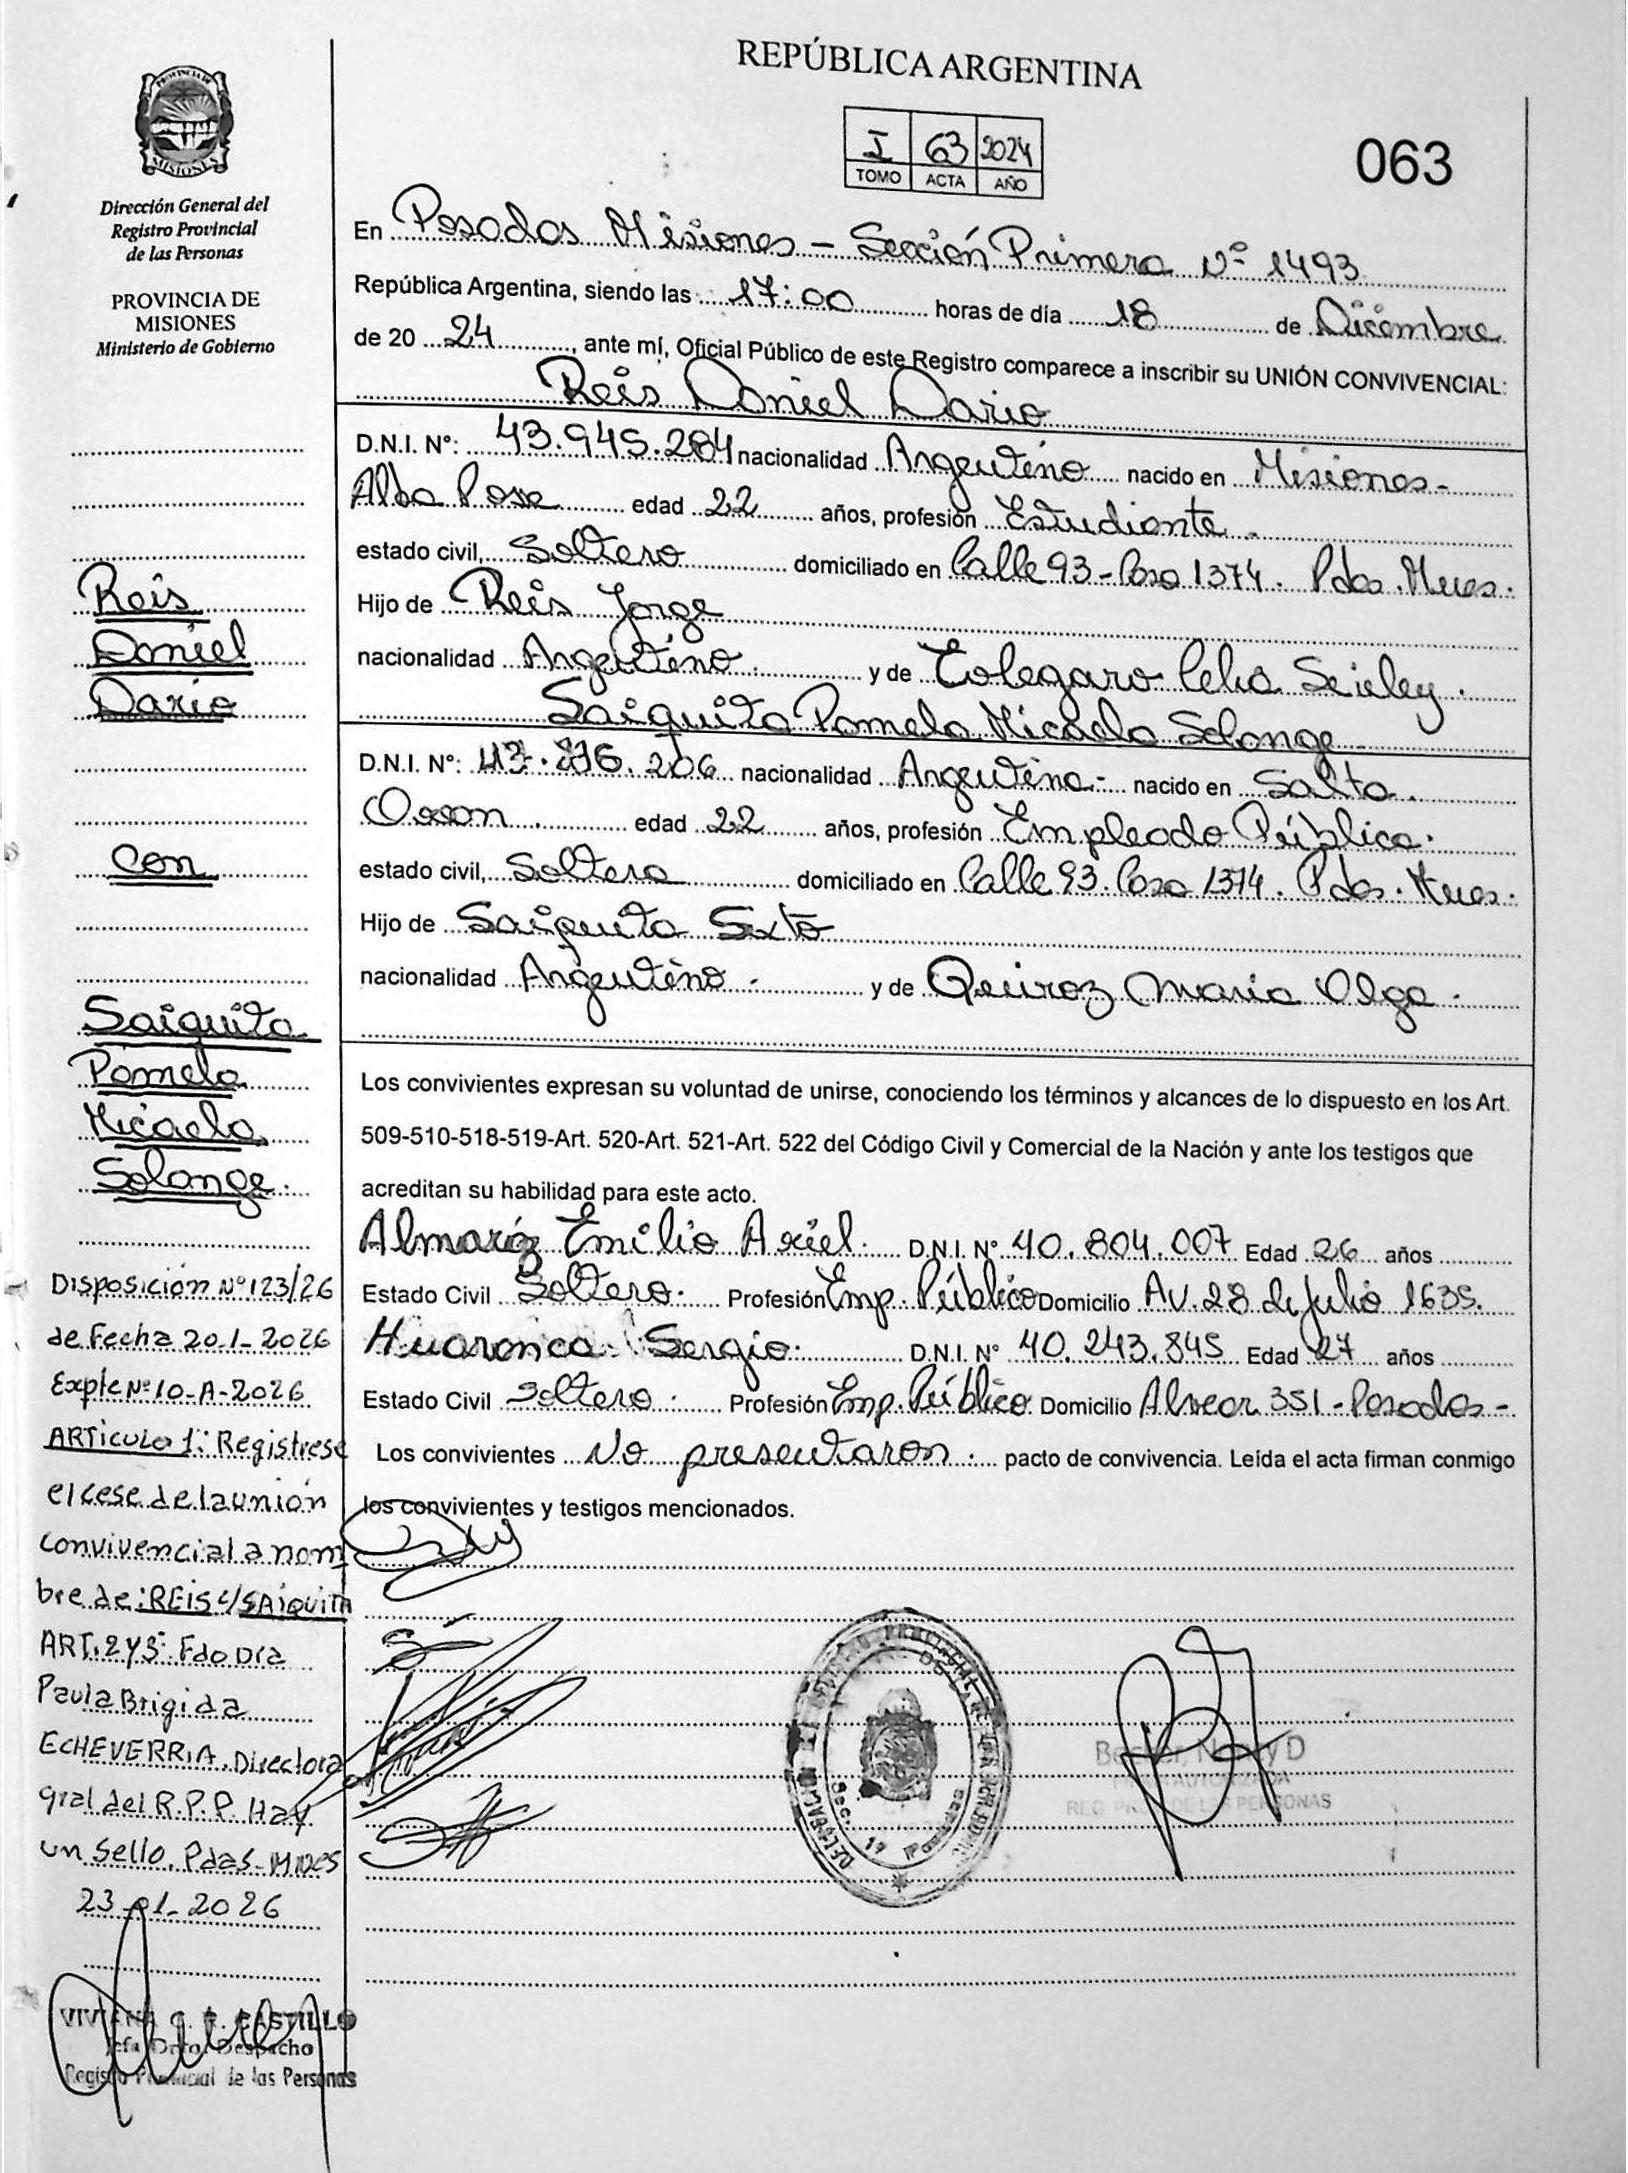 REPÚBLICA ARGENTINA
I 63 2024
TOMO ACTA AÑO
063
PROVINCIA DE
MISIONES
Dirección General del
Registro Provincial
de las Personas
PROVINCIA DE
MISIONES
Ministerio de Gobierno
Reis
Daniel
Dario
con
Saiquita
Pamela
Micaela
Solange.
Disposición Nº 123/26
de Fecha 20-1-2026
Expte Nº 10-A-2026
ARTICULO 1: Registrese
el cese de la unión
convivencial a nom
bre de: REIS c/ SAIQUITA
ART. 2 y 3: Fdo Dra
Paula Brigida
ECHEVERRIA, Directora
gral del R.P.P. Hay
un Sello, Pdas-Mnes
23-01-2026
VIVIANA C. R. CASTILLO
Jefa Dpto. Despacho
Registro Provincial de las Personas
En Posadas Misiones - Sección Primera Nº 1493
República Argentina, siendo las 17:00 horas de día 18 de Diciembre
de 20 24, ante mí, Oficial Público de este Registro comparece a inscribir su UNIÓN CONVIVENCIAL:
Reis Daniel Dario
D.N.I. Nº: 43.945.284 nacionalidad Argentino nacido en Misiones-
Alba Pose edad 22 años, profesión Estudiante.
estado civil, Soltero domiciliado en Calle 93-Casa 1374. Pdas. Mnes.
Hijo de Reis Jorge
nacionalidad Argentino. y de Celia
Saiquita Pamela Micaela Solange
D.N.I. Nº: 206 nacionalidad Argentina.- nacido en Salta.
Oran. edad 22 años, profesión Empleada Pública.
estado civil, Soltera domiciliado en Calle 93. Casa 1374. Pdas. Mnes.
Hijo de Saiquita Sixto
nacionalidad Argentino. y de Queiroz Maria Olga.
Los convivientes expresan su voluntad de unirse, conociendo los términos y alcances de lo dispuesto en los Art.
509-510-518-519-Art. 520-Art. 521-Art. 522 del Código Civil y Comercial de la Nación y ante los testigos que
acreditan su habilidad para este acto.
Almaráz Emilio Ariel. D.N.I. Nº 40.804.007 Edad 26 años
Estado Civil Soltero. Profesión Emp. Público Domicilio Av. 28 de Julio 1635.
Huaranca Sergio. D.N.I. Nº 40.243.845 Edad 27 años
Estado Civil Soltero. Profesión Emp. Público Domicilio Alvear 351-Posadas-
Los convivientes No presentaron. pacto de convivencia. Leída el acta firman conmigo
los convivientes y testigos mencionados.